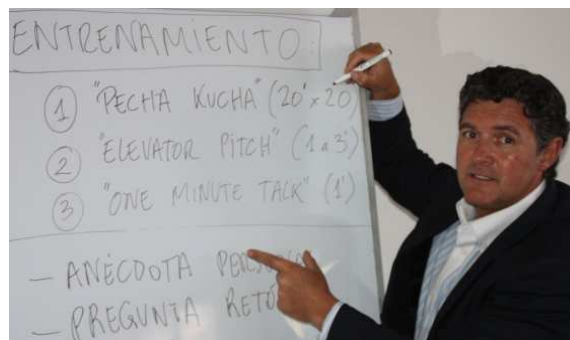 ENTRENAMIENTO:
1 "PECHA KUCHA" (20' x 20)
2 "ELEVATOR PITCH" (1 a 3')
3 "ONE MINUTE TALK" (1')
- ANÉCDOTA
- PREGUNTA